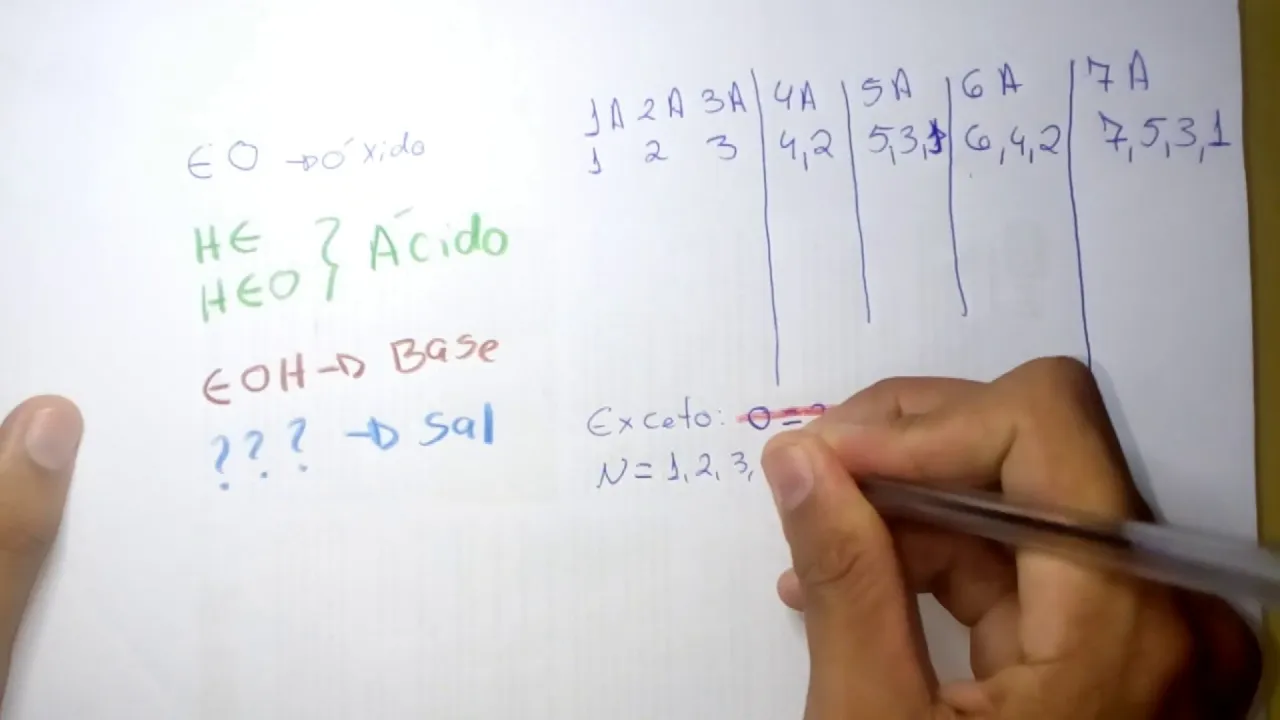 EO → Óxido
HE
HEO } Ácido
EOH → Base
??? → Sal
1A 2A 3A 4A 5A 6A 7A
1 2 3 4,2 5,3,1 6,4,2 7,5,3,1
Exceto: O =
N = 1, 2, 3,